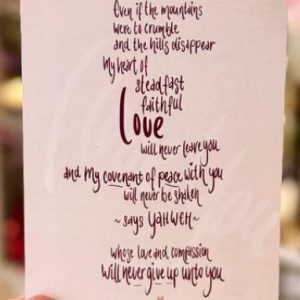 Even if the mountains
were to crumble
and the hills disappear
my heart of
steadfast
faithful
love
will never leave you
and my covenant of peace with you
will never be shaken
~ says YAHWEH ~
whose love and compassion
will never give up unto you